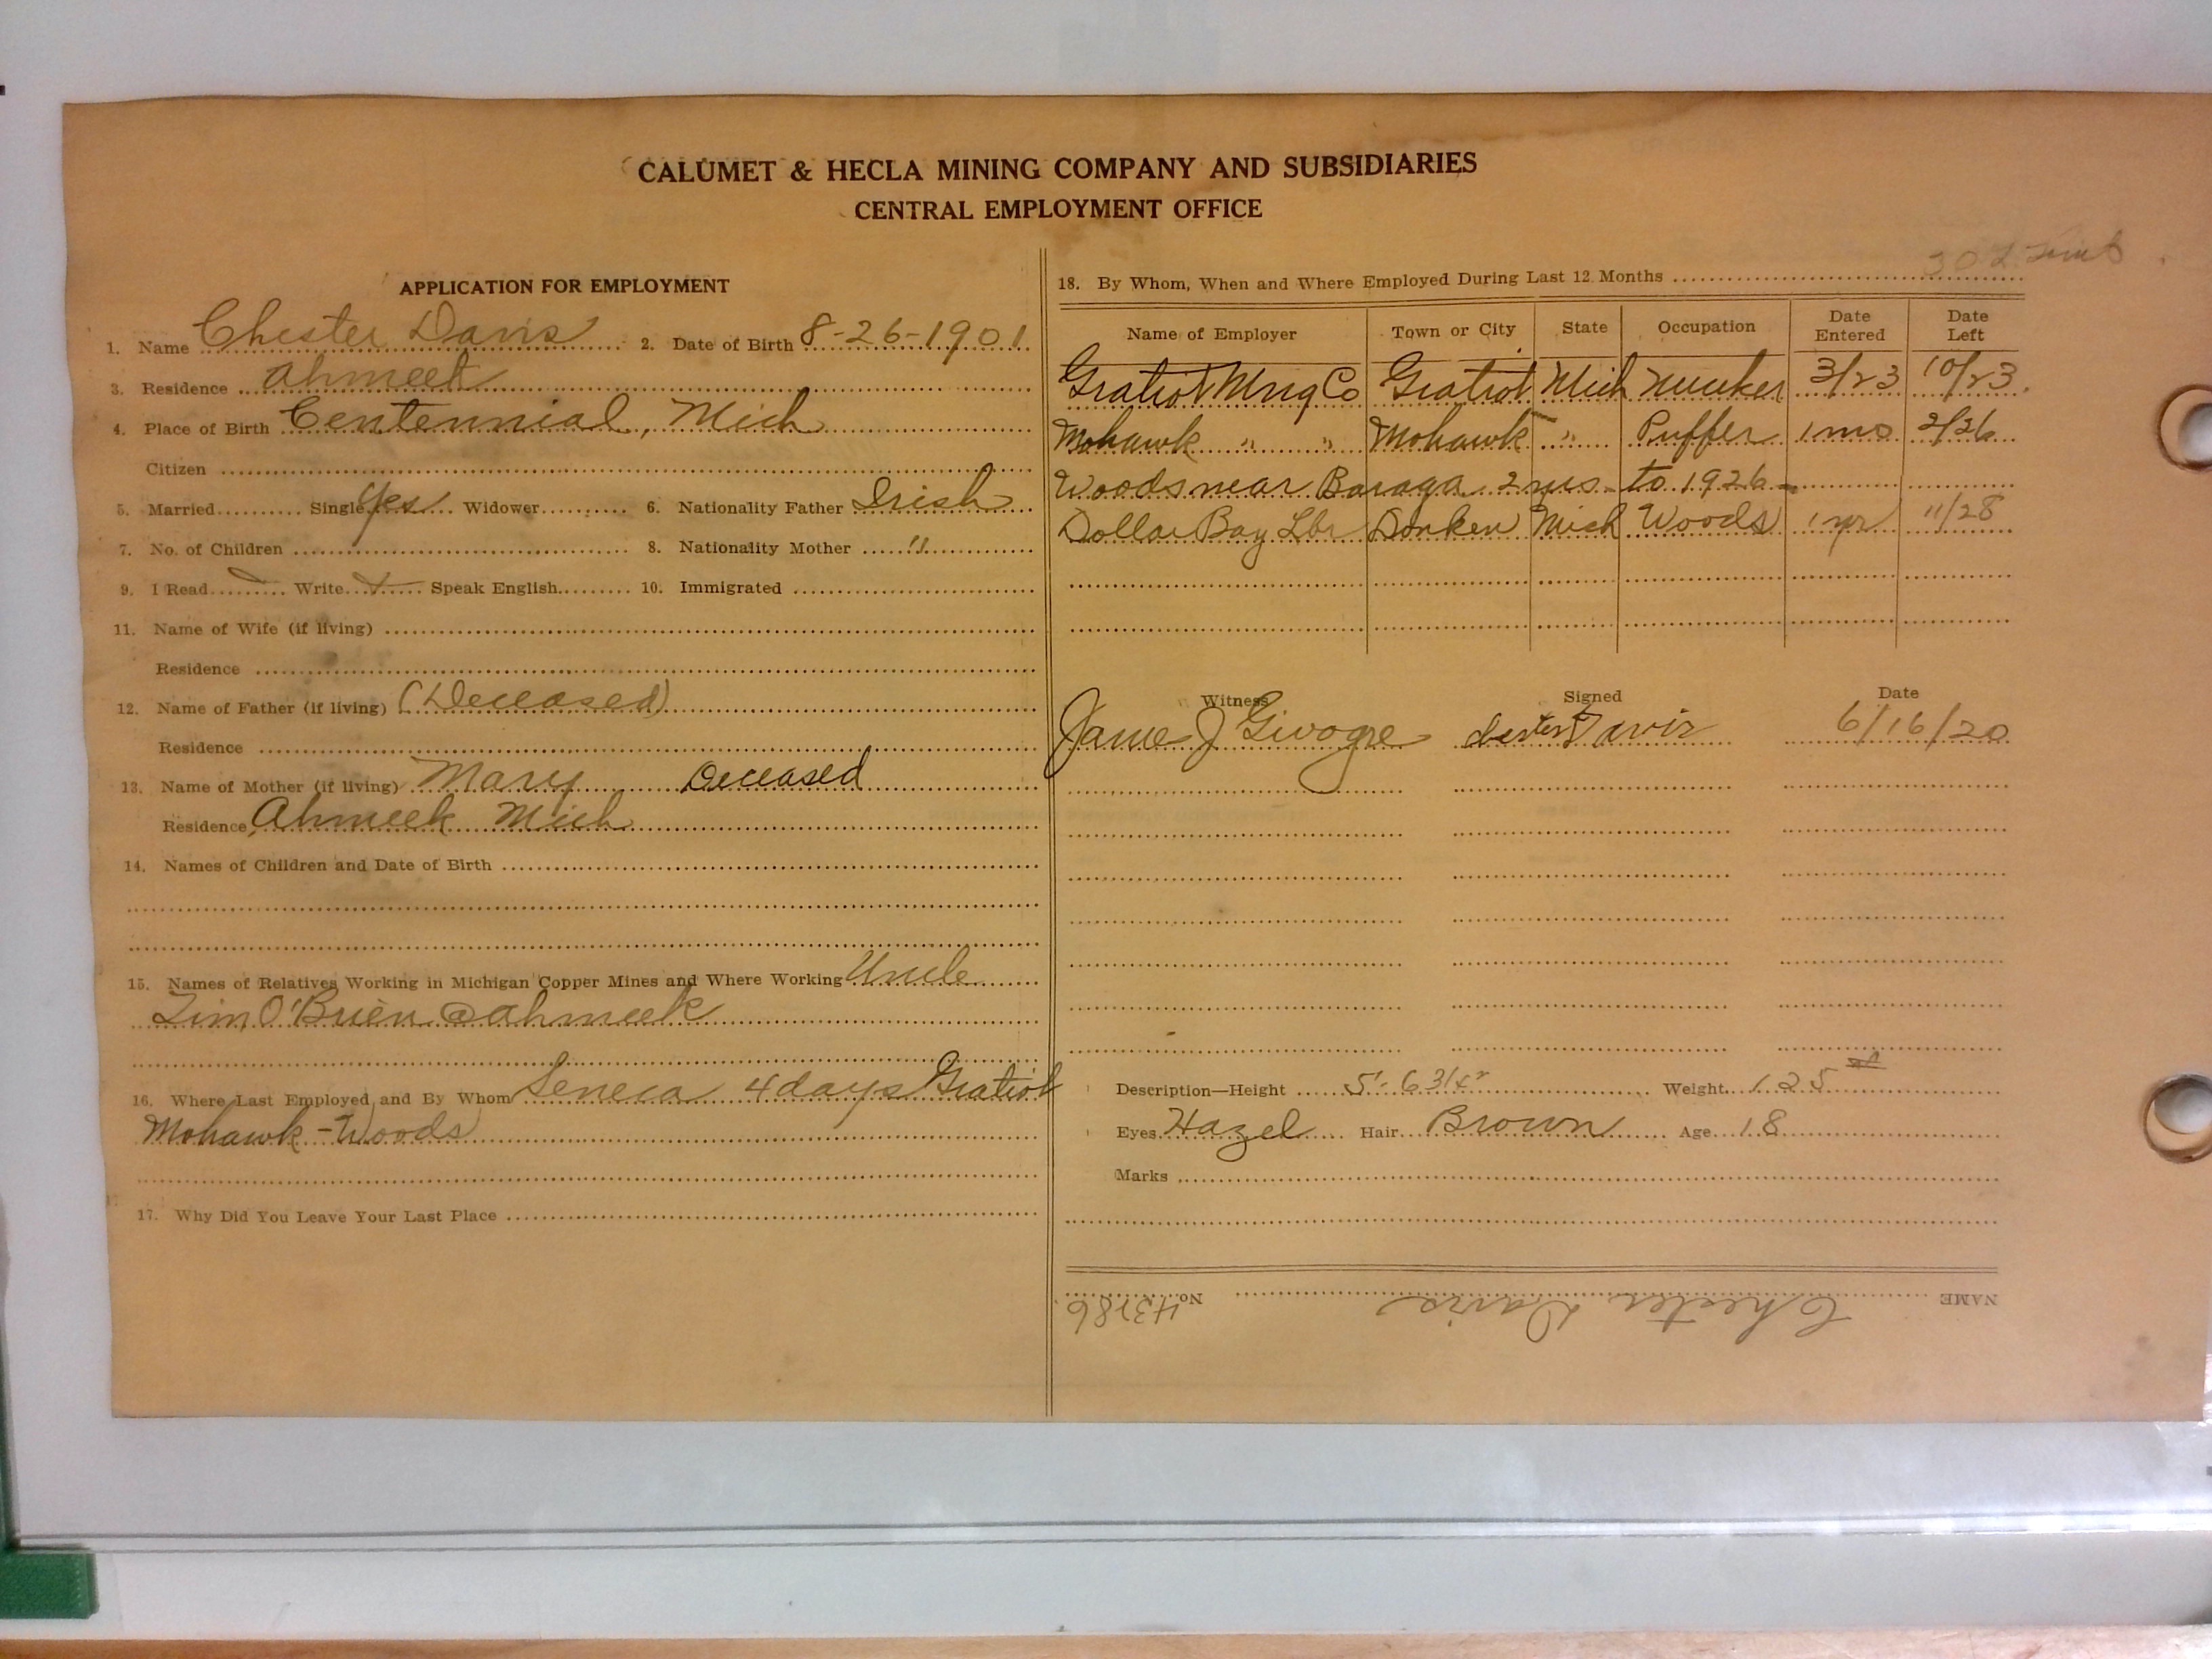 CALUMET & HECLA MINING COMPANY AND SUBSIDIARIES
CENTRAL EMPLOYMENT OFFICE
APPLICATION FOR EMPLOYMENT
1. Name Chester Davis 2. Date of Birth 8-26-1901
3. Residence Ahmeek
4. Place of Birth Centennial, Mich
Citizen
5. Married Single Yes Widower 6. Nationality Father Irish
7. No. of Children 8. Nationality Mother "
9. I Read Write Speak English 10. Immigrated
11. Name of Wife (if living)
Residence
12. Name of Father (if living) (Deceased)
Residence
13. Name of Mother (if living) Mary Deceased
Residence Ahmeek Mich
14. Names of Children and Date of Birth
15. Names of Relatives Working in Michigan Copper Mines and Where Working Uncle
Tim O'Brien @ Ahmeek
16. Where Last Employed and By Whom Seneca 4 days Gratiot
Mohawk - Woods
17. Why Did You Leave Your Last Place
18. By Whom, When and Where Employed During Last 12 Months
Name of Employer Town or City State Occupation Date Entered Date Left
Gratiot Mng Co Gratiot Mich 3/23 10/23.
Mohawk " " Mohawk " Puffer 1 mo 2/26
Woods near Baraga 2 to 1926
Dollar Bay Lbr Donken Mich Woods 1 yr 11/28
Witness Signed Date
James J Chester Davis 6/16/20
Description—Height 5'-6 3/4" Weight 125
Eyes Hazel Hair Brown Age 18
Marks
NAME Chester Davis No. 43786